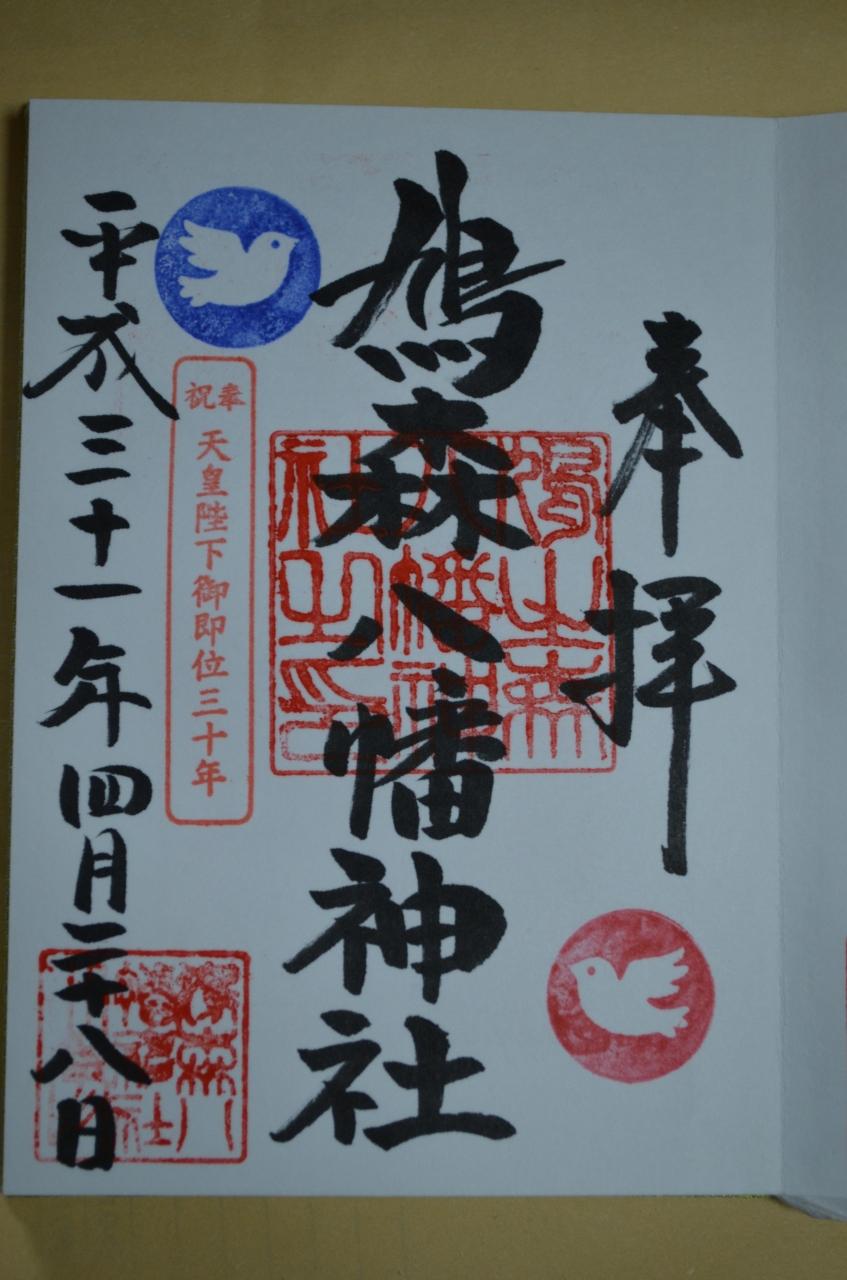 奉拝
鳩森八幡神社
鳩之森
八幡神
社之印
奉祝
天皇陛下御即位三十年
平成三十一年四月二十八日